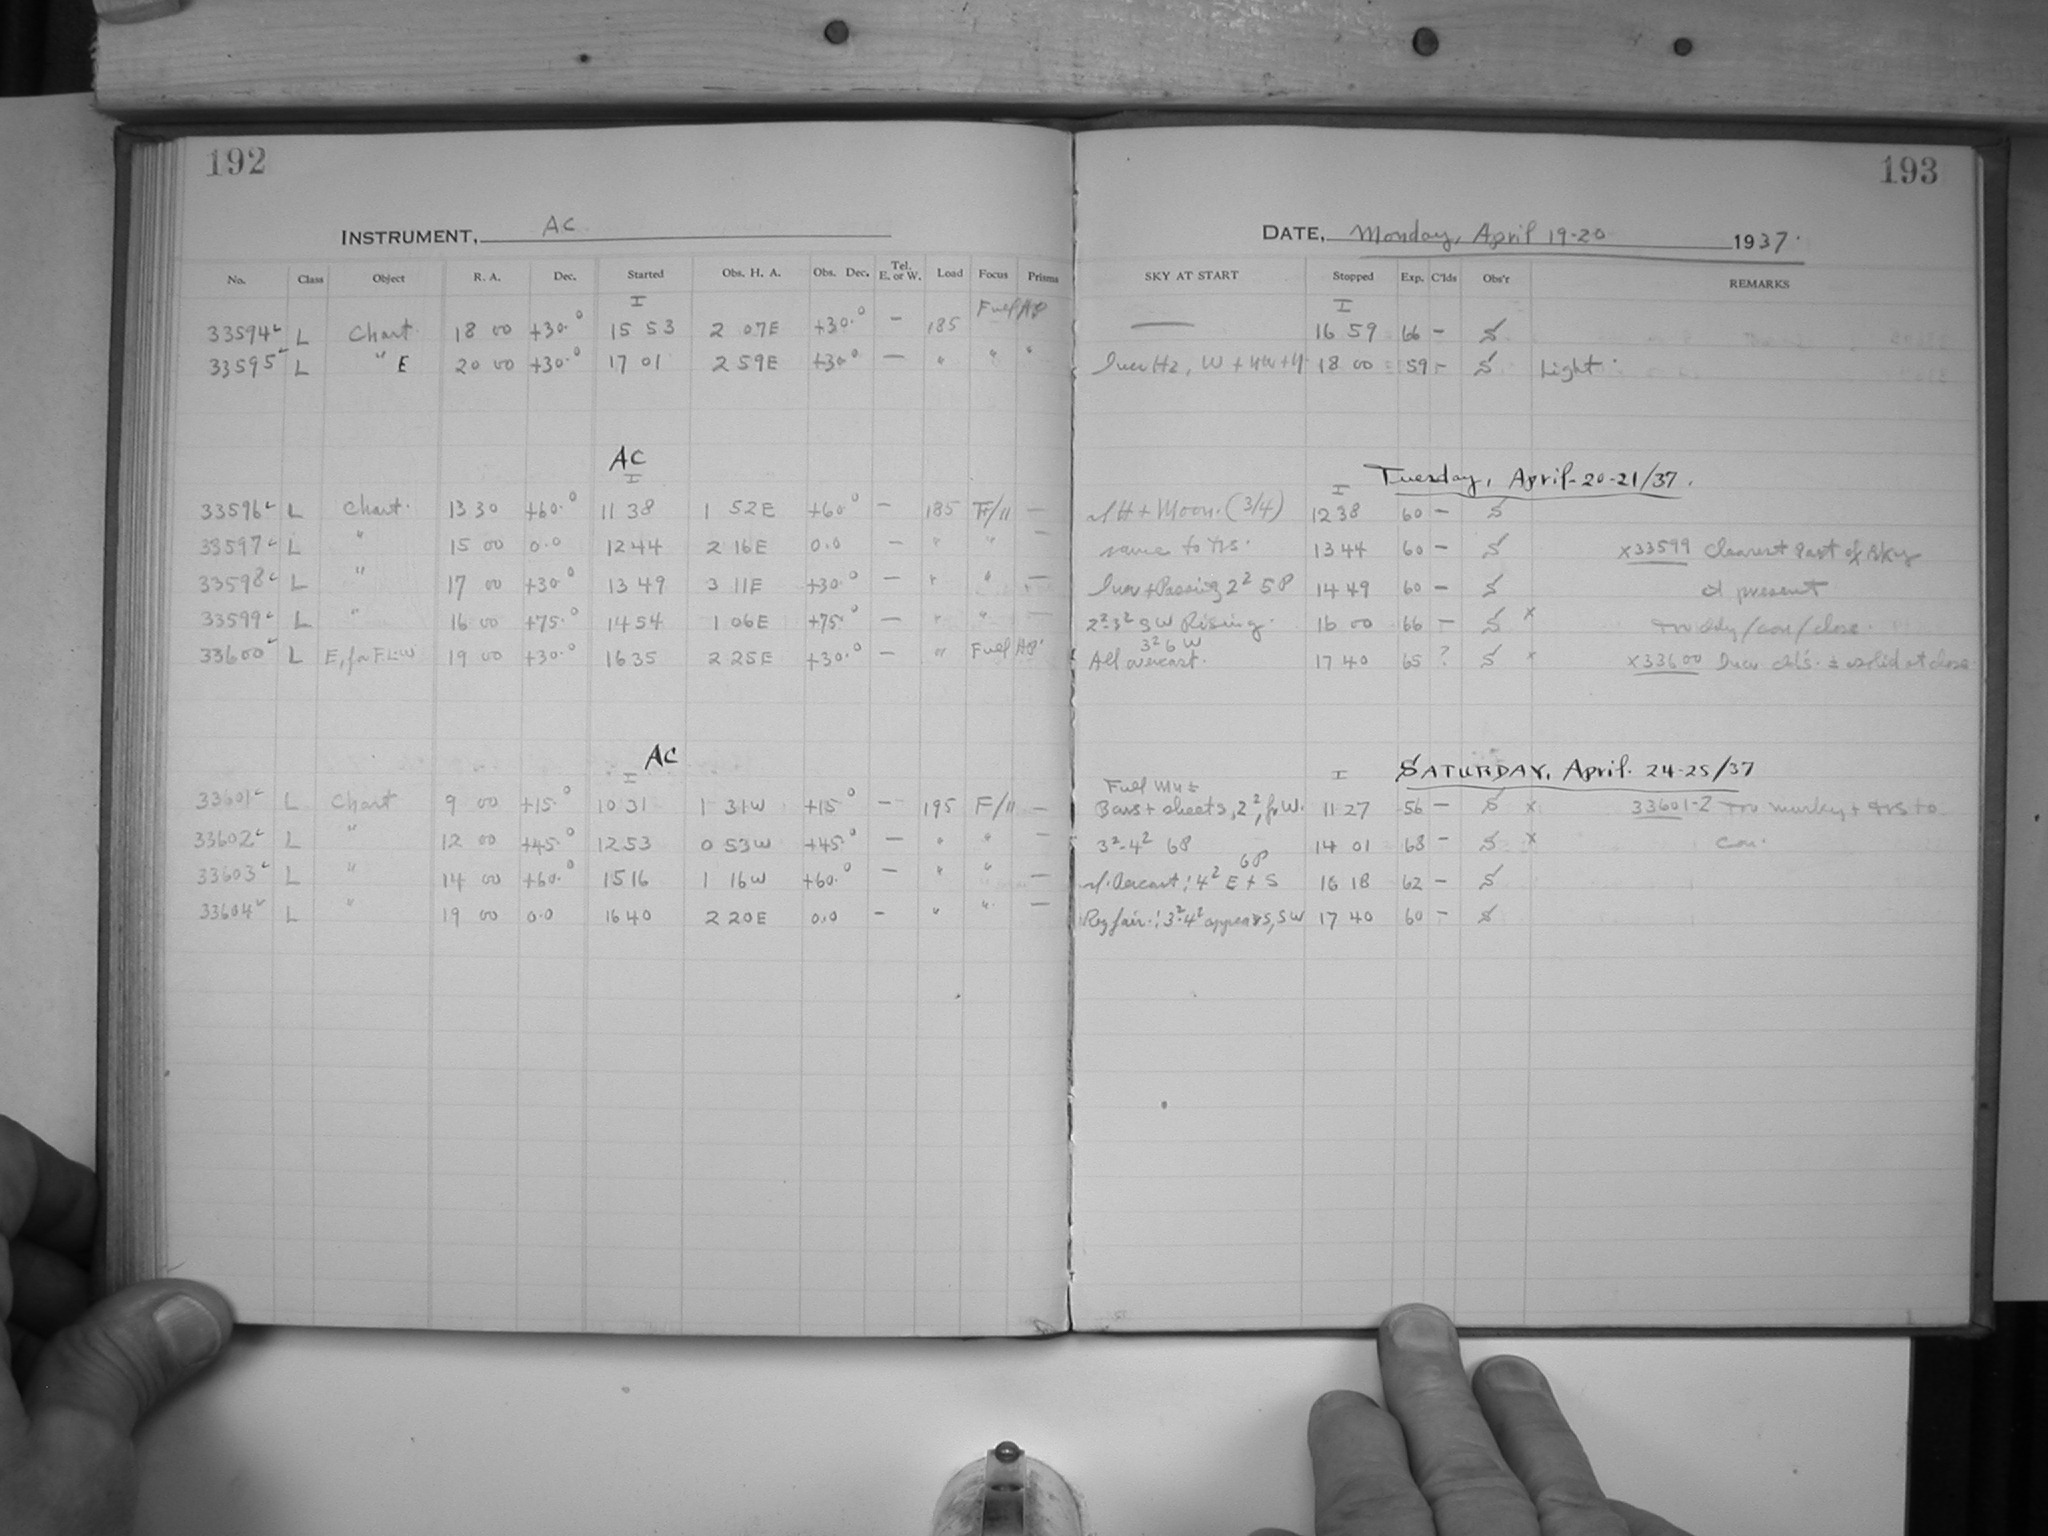 192
INSTRUMENT, AC
No. Class Object R. A. Dec. Started Obs. H. A. Obs. Dec. Tel. E. or W. Load Focus Prisms
I
33594 L Chart 18 00 +30.0 15 53 2 07E +30.0 — 185
33595 L " E 20 00 +30.0 17 01 2 59E +30 0 — " " "
AC
I
33596 L Chart. 13 30 +60.0 11 38 1 52E +60 0 — 185 F/11 —
33597 L " 15 00 0.0 12 44 2 16E 0.0 — " " —
33598 L " 17 00 +30 0 13 49 3 11E +30.0 — " " —
33599 L " 16 00 +75.0 14 54 1 06E +75.0 — " " —
33600 L E, for 19 00 +30.0 16 35 2 25E +30.0 — "
AC
I
33601 L Chart 9 00 +15.0 10 31 1 31W +15 0 — 195 F/11 —
33602 L " 12 00 +45.0 12 53 0 53W +45 0 — " " —
33603 L " 14 00 +60.0 15 16 1 16W +60.0 — " " —
33604 L " 19 00 0.0 16 40 2 20E 0.0 — " " —
193
DATE, Monday, April 19-20 1937.
SKY AT START Stopped Exp. C'lds Obs'r REMARKS
I
— 16 59 66 — S
18 00 59 — S Light.
Tuesday, April-20-21/37.
I
H + Moon. (3/4) 12 38 60 — S
13 44 60 — S x33599 Clearest part of sky
14 49 60 — S at present
2²-3² SW Rising. 16 00 66 — S x
3² 6 W
All overcast. 17 40 65 ? S x x33600 at close
I SATURDAY, April. 24-25/37
Bars + sheets, 2², W. 11 27 56 — S x 33601-2 murky +
3²-4² 6P 14 01 68 — S x
6P
4² E + S 16 18 62 — S
fair.: 3²-4² appears S, SW 17 40 60 — S